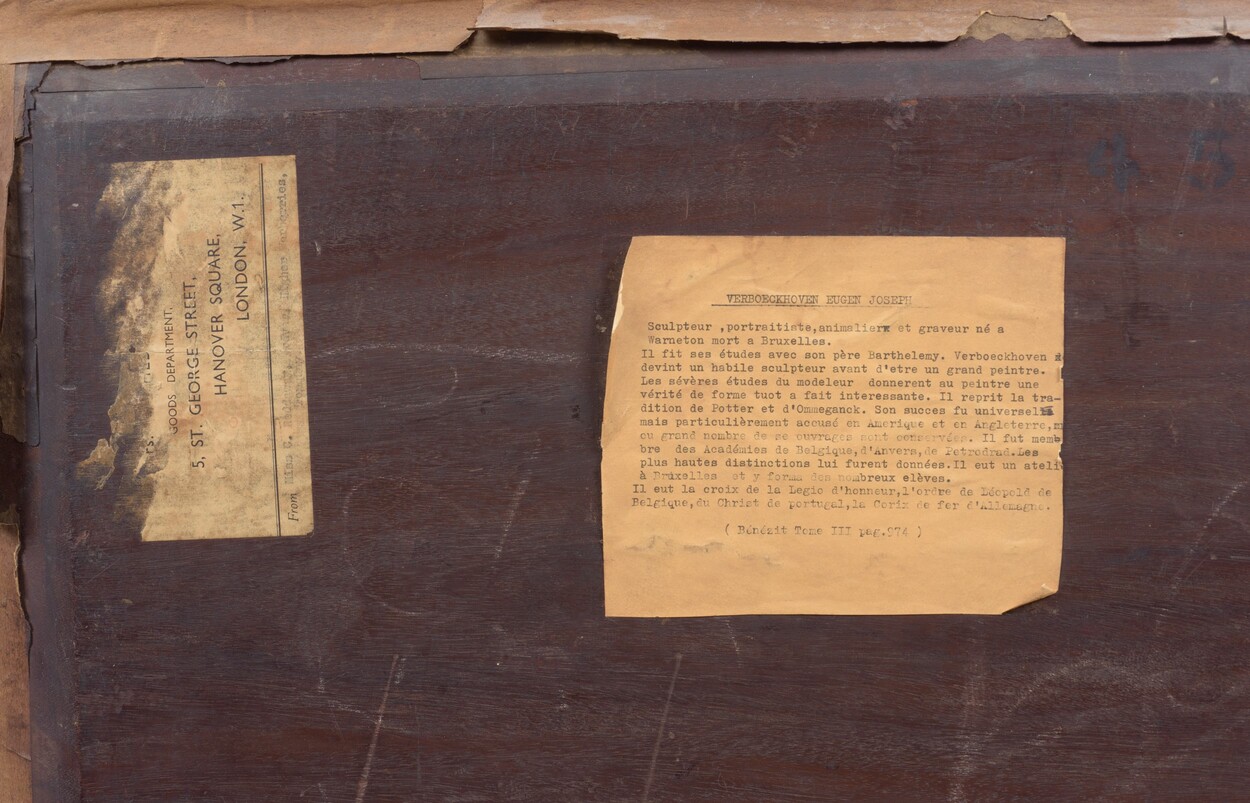 GOODS DEPARTMENT,
5, ST. GEORGE STREET,
HANOVER SQUARE,
LONDON, W.1.
From Miss
4 5
VERBOECKHOVEN EUGEN JOSEPH
Sculpteur ,portraitiste,animalierx et graveur né a
Warneton mort a Bruxelles.
Il fit ses études avec son père Barthelemy. Verboeckhoven
devint un habile sculpteur avant d'etre un grand peintre.
Les sévères études du modeleur donnerent au peintre une
vérité de forme tuot a fait interessante. Il reprit la tra-
dition de Potter et d'Ommeganck. Son succes fu universel
mais particulièrement accusé en Amerique et en Angleterre,
ou grand nombre de se ouvrages sont conservées. Il fut mem
bre des Académies de Belgique,d'Anvers,de Petrodrad.Les
plus hautes distinctions lui furent données.Il eut un ateli
à Bruxelles et y forma des nombreux elèves.
Il eut la croix de la Legio d'honneur,l'ordre de Léopold de
Belgique,du Christ de portugal,la Corix de fer d'Allemagne.
( Bénézit Tome III pag.974 )